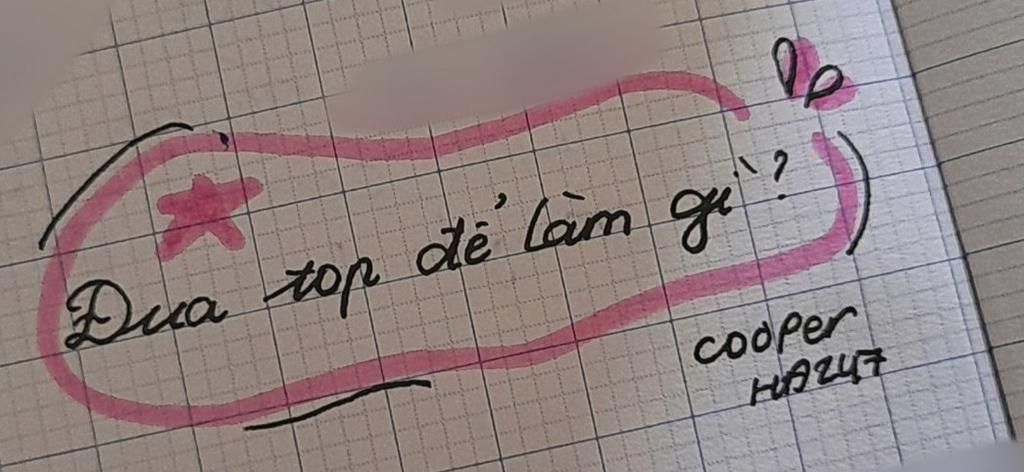 Đua top để làm gì?
cooper
HA247